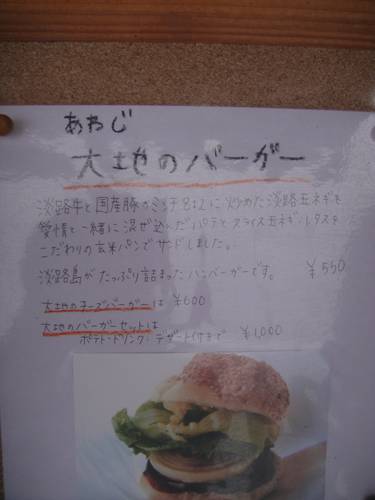 あわじ
大地のバーガー
淡路牛と国産豚のミンチ肉に炒めた淡路玉ネギを
愛情と一緒に混ぜ込んだパテとスライス玉ネギ・レタスを
こだわりの玄米パンでサンドしました。
淡路島がたっぷり詰まったハンバーガーです。 ¥550
大地のチーズバーガーは ¥600
大地のバーガーセットは
ポテト・ドリンク・デザート付きで ¥1,000